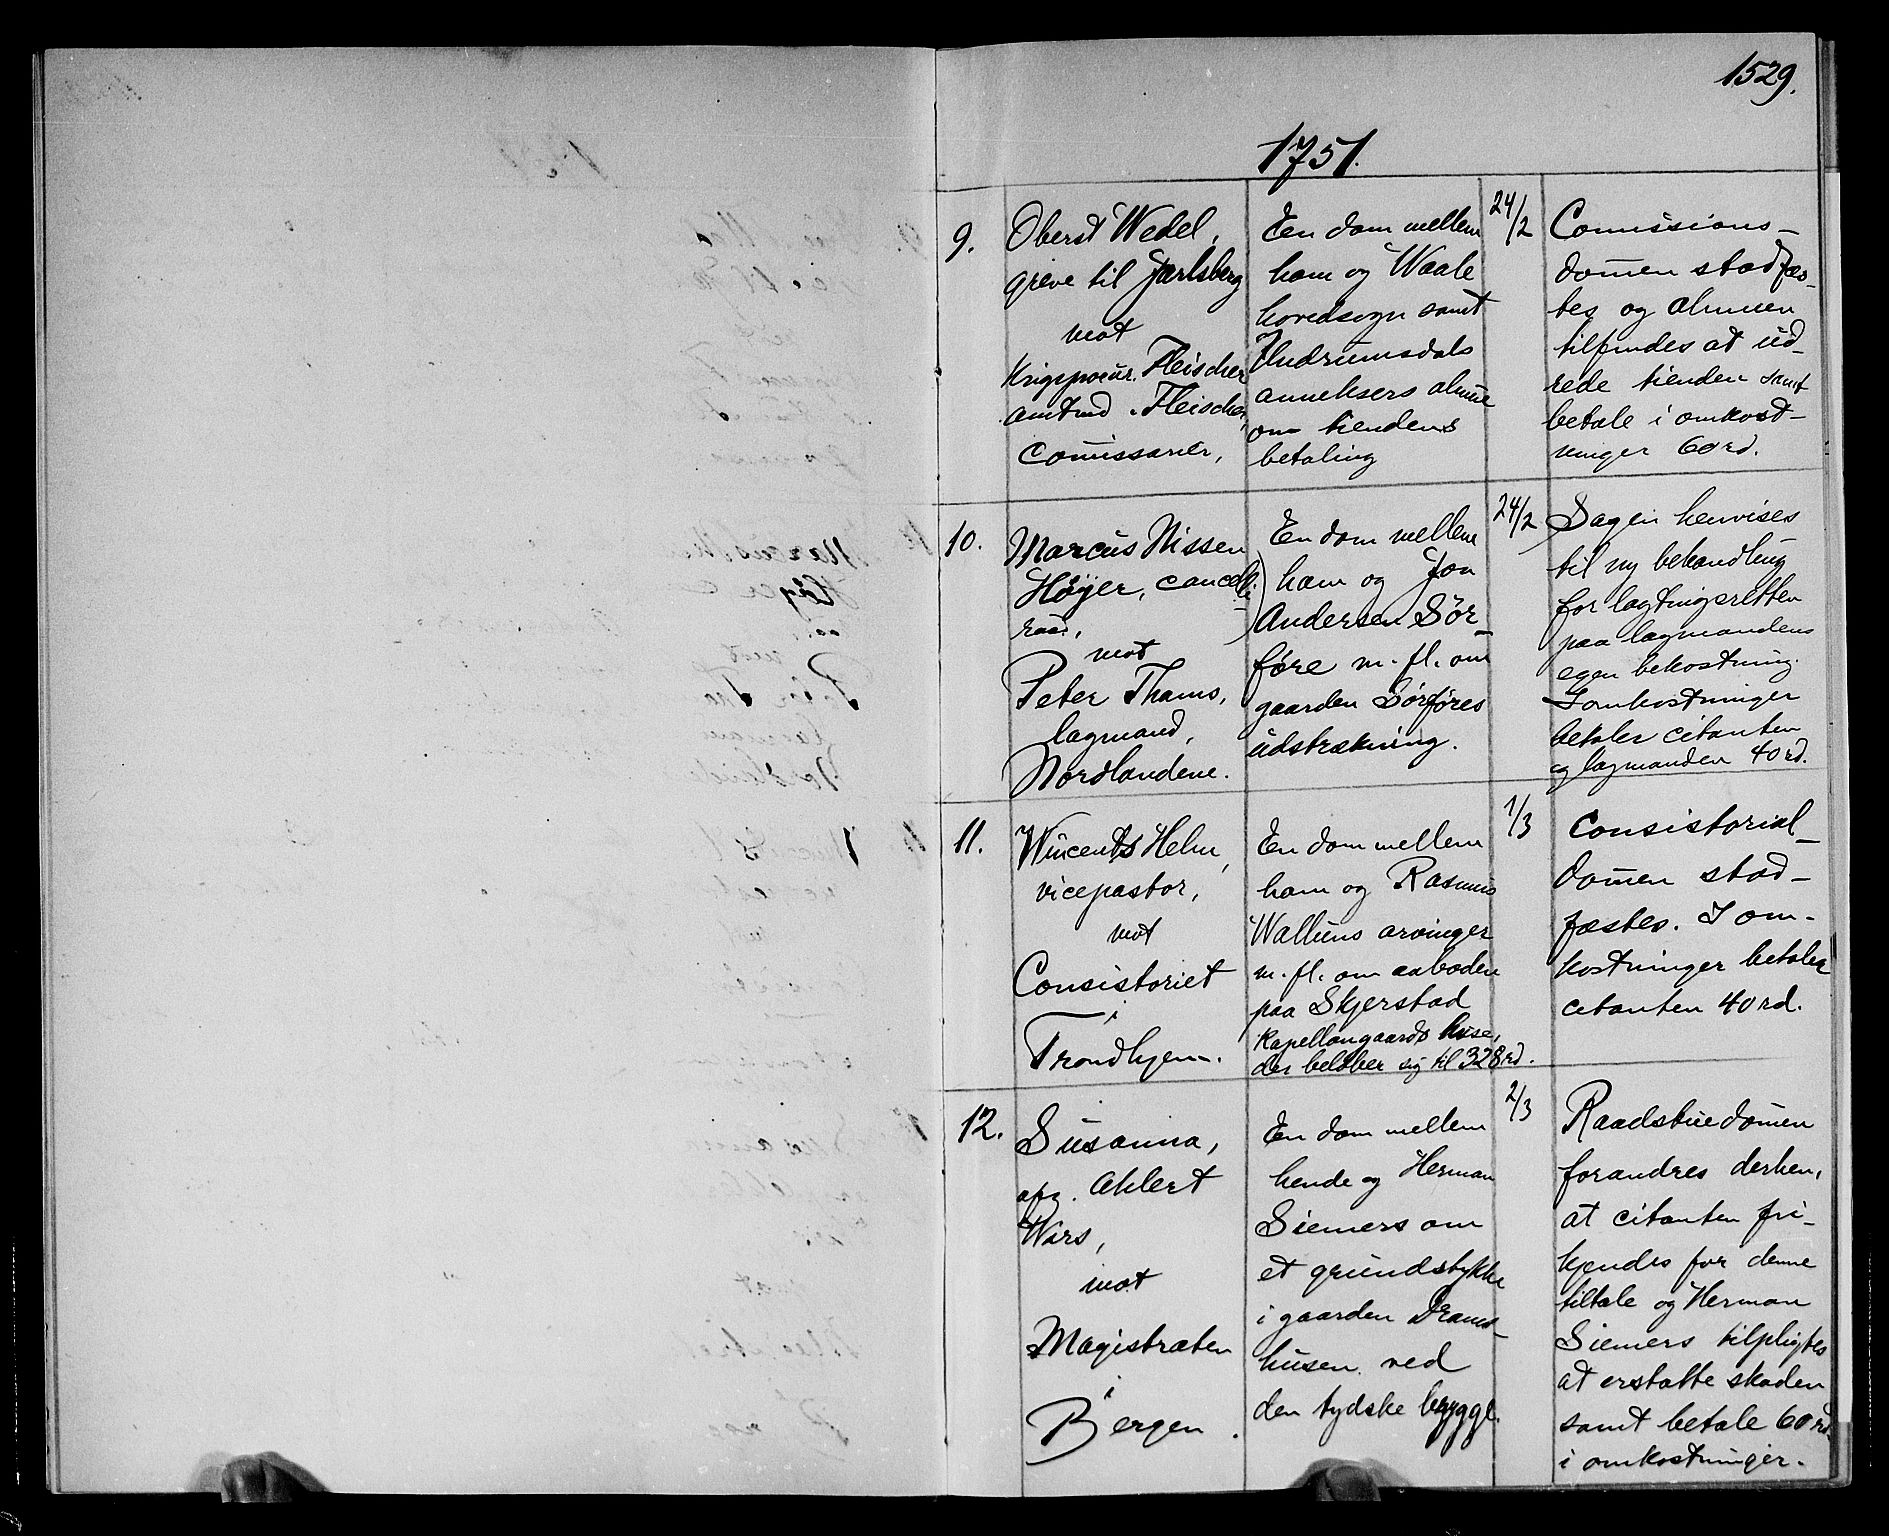 1529.
1751.
9.
Oberst Wedel,
greve til Jarlsberg
mot
Krigsprocur. Fleischer
amtmd. Fleischer,
Comissarier,
Een dom mellem
ham og Waale
hovedsogn samt
Undrumsdals
anneksers almue
om tiendens
betaling
24/2
Comissions-
domen stadfæs-
tes og almuen
tilfindes at ud-
rede tienden samt
betale i omkost-
ninger 60 rd.
10.
Marcus Nissen
Høyer, cancelli-
raad,
mot
Peter Thams,
lagmand,
Nordlandene.
En dom mellem
ham og Jon
Andersen Sör-
före m. fl. om
gaarden Sörföres
udstrækning.
24/2
Sagen henvises
til ny behandling
for lagtingsretten
paa lagmandens
egen bekostning.
I omkostninger
betaler citanten
og lagmanden 40 rd.
11.
Wincents Helm,
vicepastor,
mot
Consistoriet
i
Trondhjem.
En dom mellem
ham og Rasmus
Walliens arvinger
m. fl. om aaboden
paa Skjerstad
Kapellangaards huse,
der belöber sig til 328 rd.
1/3
Consistorial-
domen stad-
fæstes. I om-
kostninger betaler
citanten 40 rd.
12.
Susanna,
afg. Ahlert
Wars,
mot
Magistraten
i
Bergen.
En dom mellem
hende og Herman
Siemers om
et grundstykke
i gaarden Drams-
husen ved
den tydske brygge.
2/3
Raadstuedomen
forandres derhen,
at citanten fri-
kjendes for denne
tiltale og Herman
Siemers tilpligtes
at erstatte skaden
samt betale 60 rd.
i omkostninger.